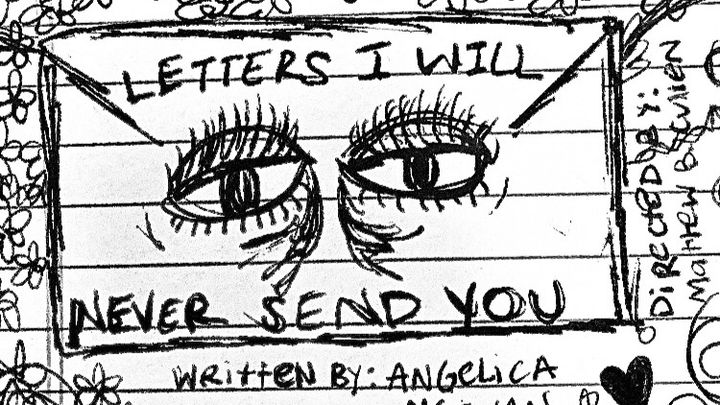 LETTERS I WILL
NEVER SEND YOU
WRittEN BY: ANGELiCA
DiRECTED BY:
Matthew B